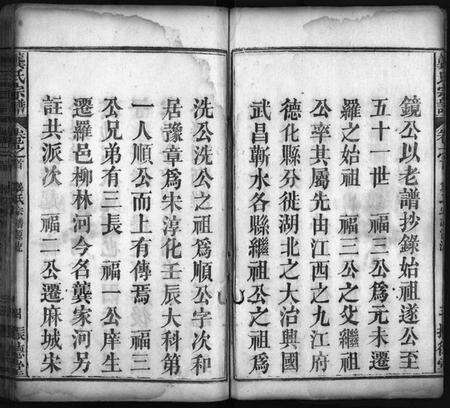 鏡公以老譜抄錄始祖遂公至
五十一世 福三公爲元末遷
羅之始祖 福三公之父繼祖
公率其屬先由江西之九江府
德化縣分徙湖北之大冶興國
武昌蘄水各縣繼祖公之祖爲
洗公洗公之祖爲順公字次和
居豫章爲宋淳化壬辰大科第
一人順公而上有傳焉 福三
公兄弟有三長 福一公庠生
遷羅邑柳林河今名龔家河另
註共派次 福二公遷麻城宋
龔氏宗譜